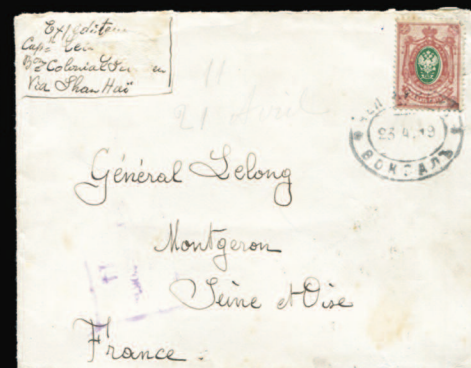 Expéditeur
Cap.
Bon Colonial
Via Shan Haï
21 Avril
23.4.19
ВОКЗАЛЪ
Général Lelong
Montgeron
Seine et Oise
France